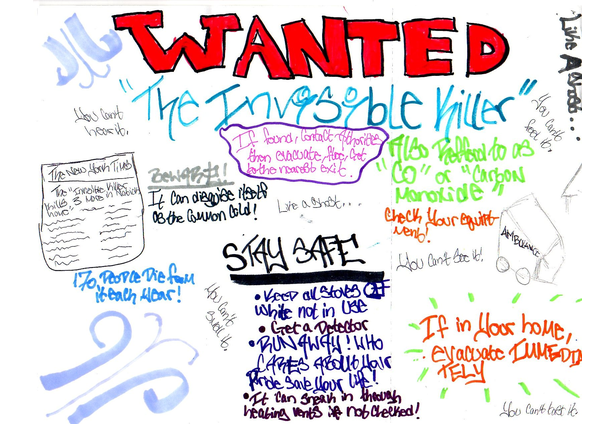 WANTED
"The Invisible Killer"
Like A Ghost...
You can't
hear it.
If found, contact Athorities
then evacuate
to the nearest exit.
You can't
feel it.
"Also Reffered to as
CO" or "Carbon
Monoxide"
The New York Times
The "Invisible Killer"
kills 3 more in
BEWARE!!
It can disguise itself
as the Common Cold!
Like a Ghost...
Check Your equipt-
ment!
AMBULANCE
You Can't See it!
STAY SAFE
People Die from
it each Year!
You can't
smell it.
• Keep all stoves OFF
while not in use
• Get a Detector
• RUN AWAY! WHO
CARES ABOUT Your
Pride Save Your Life!
• It can sneak in through
heating vents if not checked!
If in your home,
evacuate IMMEDIA
TELY
You Can't taste it.